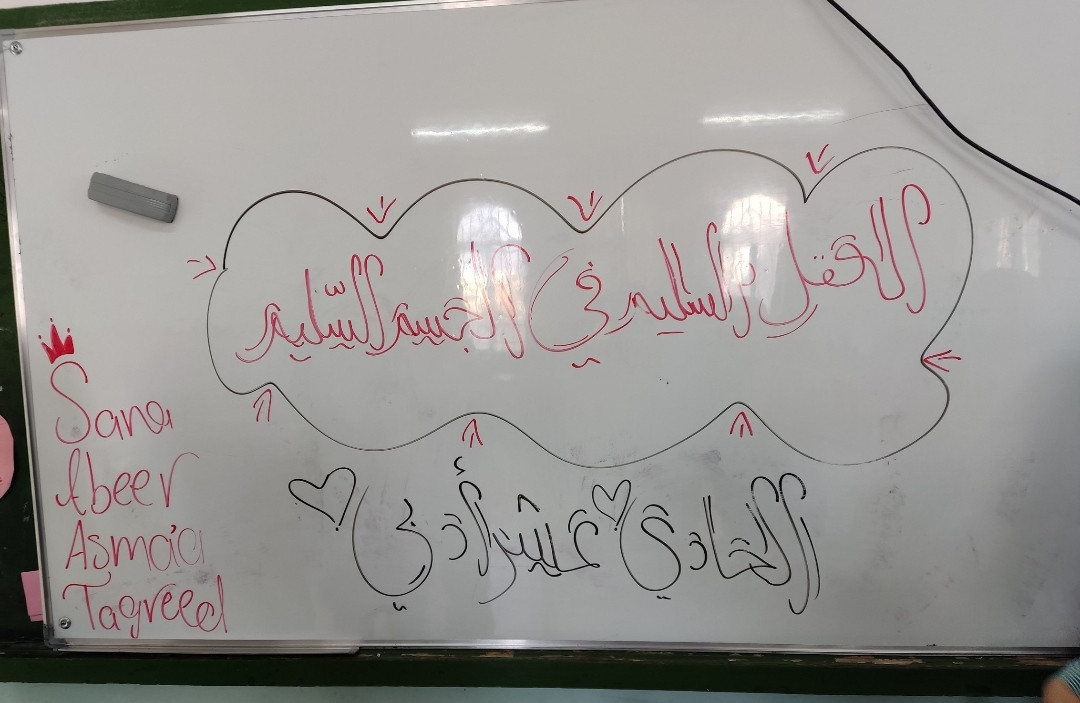 العقل السليم في الجسم السّليم
الحادي عشر أدبي
Sana
Abeer
Asma'a
Tagreed